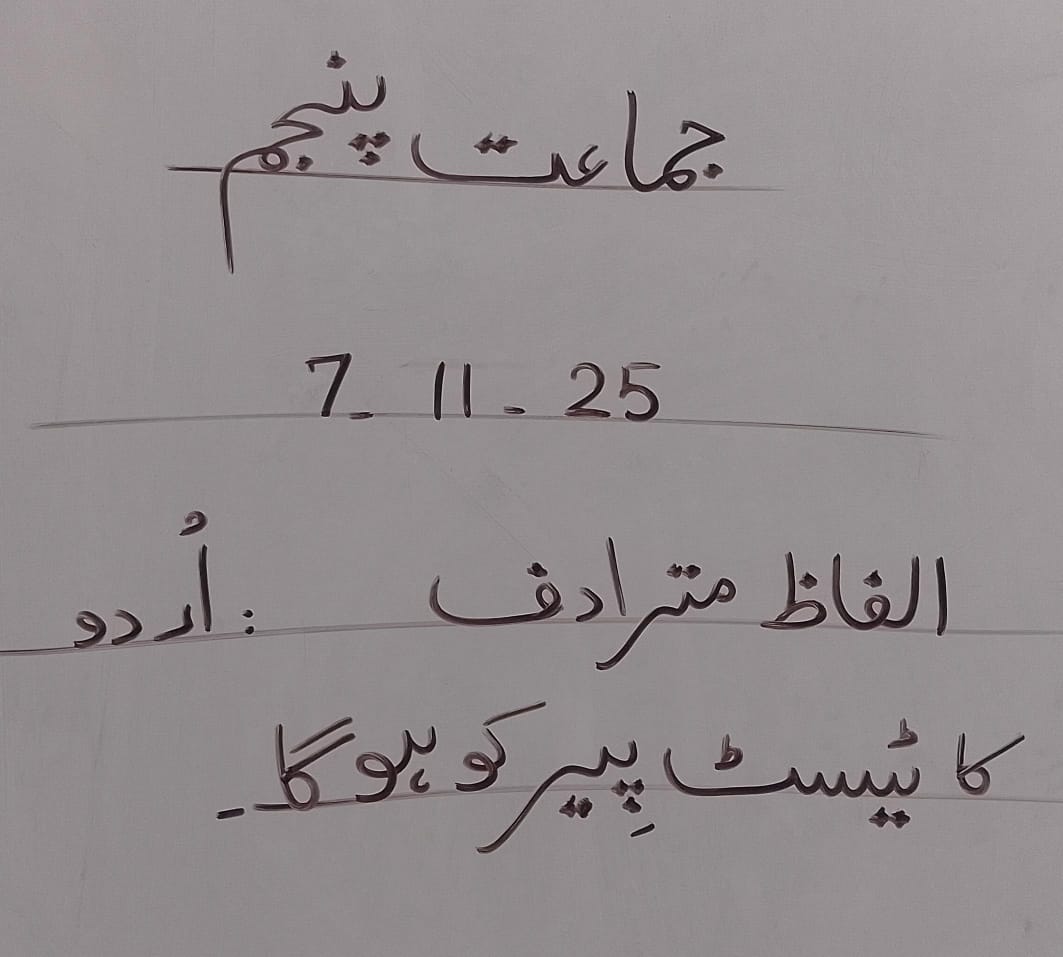 جماعت پنجم
7. 11. 25
الفاظ مترادف : اُردو
کا ٹیسٹ پِیر کو ہوگا۔